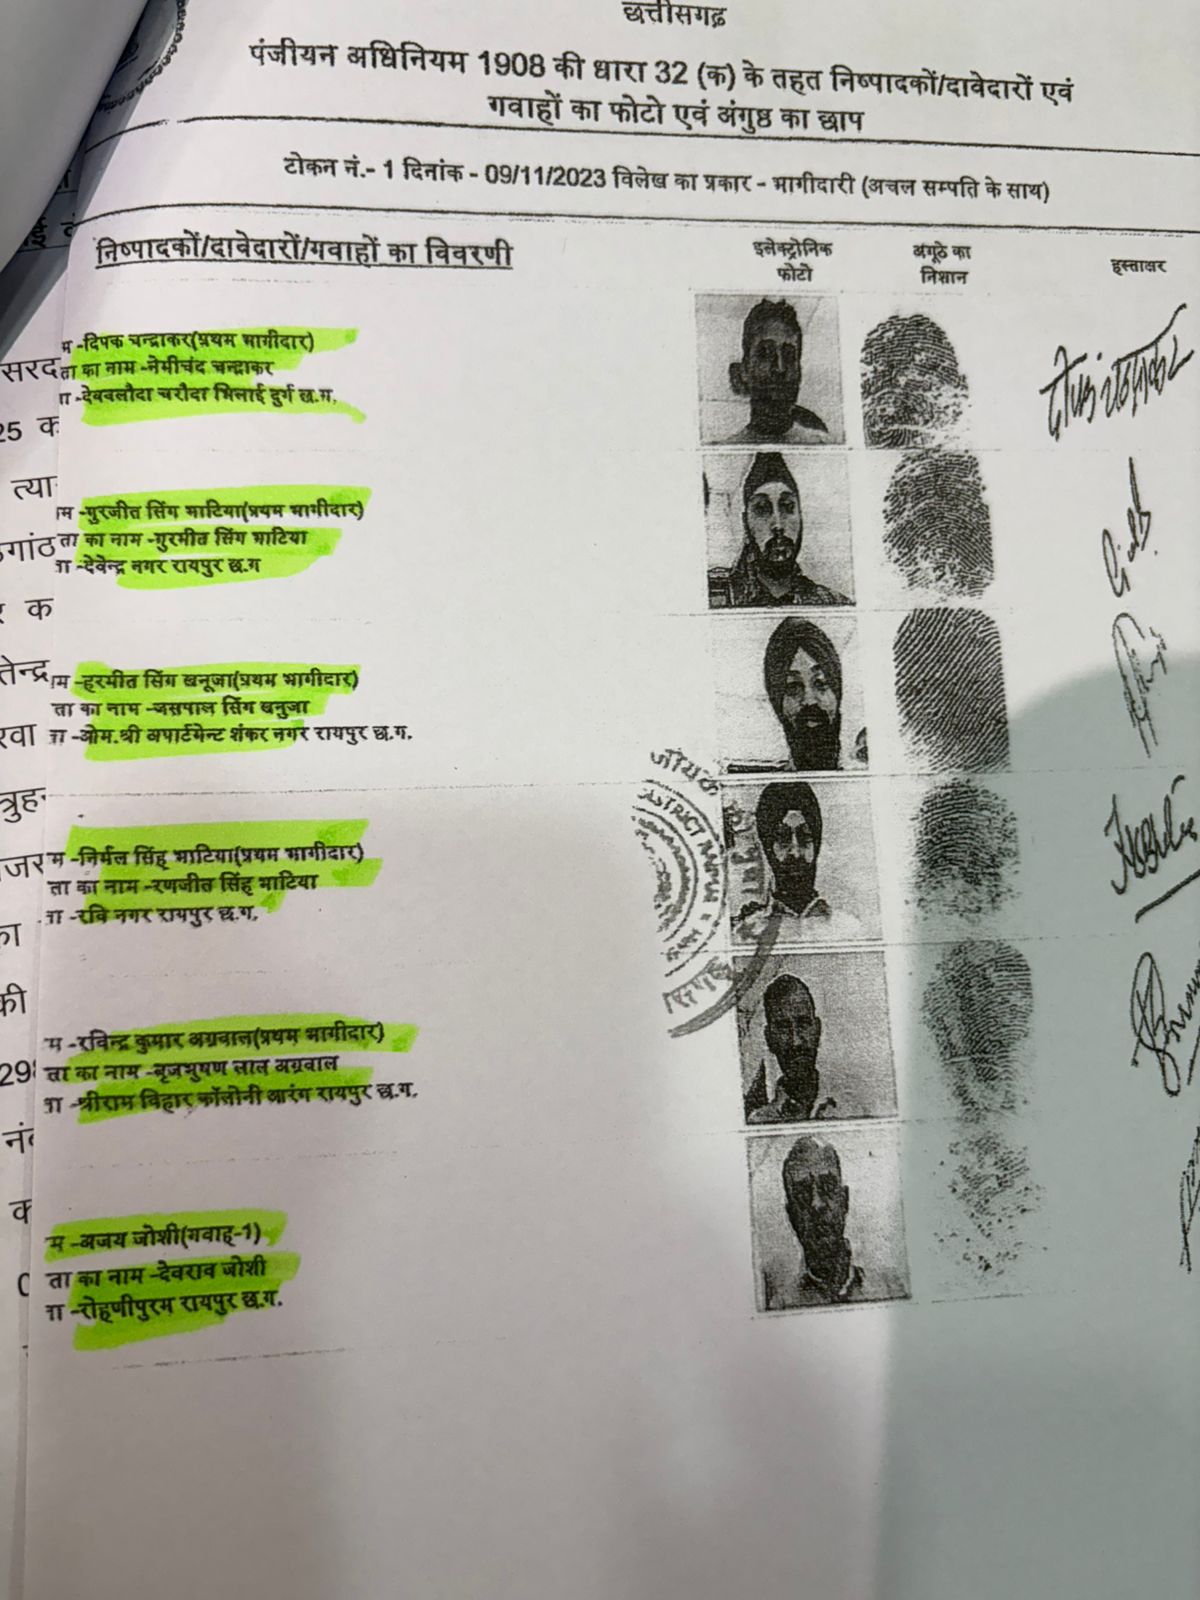 छत्तीसगढ़
पंजीयन अधिनियम 1908 की धारा 32 (क) के तहत निष्पादकों/दावेदारों एवं
गवाहों का फोटो एवं अंगुष्ठ का छाप
टोकन नं.- 1 दिनांक - 09/11/2023 विलेख का प्रकार - भागीदारी (अचल सम्पति के साथ)
निष्पादकों/दावेदारों/गवाहों का विवरणी
इलेक्ट्रोनिक फोटो
अंगूठे का निशान
हस्ताक्षर
म -दिपक चन्द्राकर(प्रथम भागीदार)
ता का नाम -नेमीचंद चन्द्राकर
ा -देवबलौदा चरौदा भिलाई दुर्ग छ.ग.
दीपक चन्द्राकर
म -गुरजीत सिंग भाटिया(प्रथम भागीदार)
ता का नाम -गुरमीत सिंग भाटिया
ा -देवेन्द्र नगर रायपुर छ.ग
म -हरमीत सिंग खनूजा(प्रथम भागीदार)
ता का नाम -जसपाल सिंग खनुजा
ा -ओम.श्री अपार्टमेन्ट शंकर नगर रायपुर छ.ग.
म -निर्मल सिंह भाटिया(प्रथम भागीदार)
ता का नाम -रणजीत सिंह भाटिया
ा -रवि नगर रायपुर छ.ग.
म -रविन्द्र कुमार अग्रवाल(प्रथम भागीदार)
ता का नाम -बृजभुषण लाल अग्रवाल
ा -श्रीराम विहार कॉलोनी आरंग रायपुर छ.ग.
म -अजय जोशी(गवाह-1)
ता का नाम -देवराव जोशी
ा -रोहणीपुरम रायपुर छ.ग.
सरद
25 क
त्या
गांठ
क
तेन्द्र
रवा
त्रुह
जर
का
की
29
नं
क